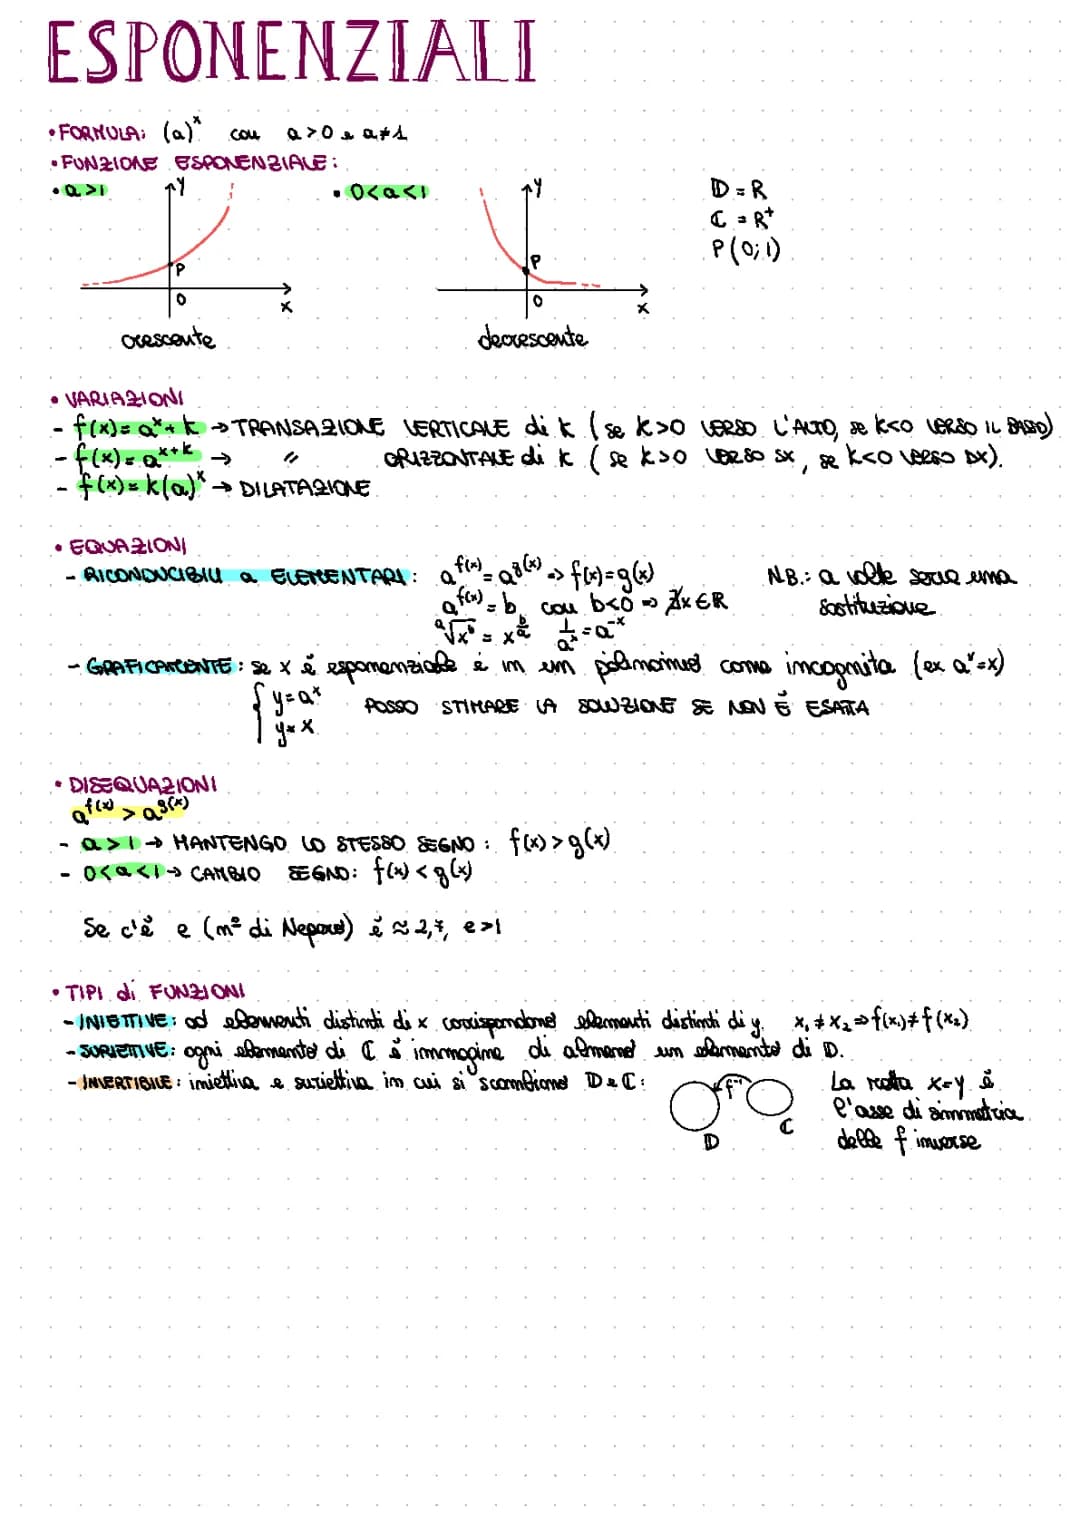 ESPONENZIALI
• FORMULA: (a)ˣ con a>0 e a≠1
• FUNZIONE ESPONENZIALE:
• a>1
y
P
0
x
crescente
• 0<a<1
y
P
0
x
decrescente
D = R
C = R⁺
P(0;1)
• VARIAZIONI
- f(x)= aˣ+k → TRANSAZIONE VERTICALE di k (se k>0 VERSO L'ALTO, se k<0 VERSO IL BASSO)
- f(x)= aˣ⁺ᵏ → " ORIZZONTALE di k (se k>0 VERSO SX, se k<0 VERSO DX).
- f(x)= k(a)ˣ → DILATAZIONE
• EQUAZIONI
- RICONDUCIBILI a ELEMENTARI: a^f(x) = a^g(x) => f(x)=g(x) N.B.: a volte serve una
a^f(x) = b, con b<0 => ∄x∈R sostituzione
ᵃ√xᵇ = x^(b/a) 1/aˣ = a⁻ˣ
- GRAFICAMENTE: se x è esponenziale e in un polinomio come incognita (ex aˣ=x)
{ y=aˣ POSSO STIMARE LA SOLUZIONE SE NON È ESATTA
y=x
• DISEQUAZIONI
a^f(x) > a^g(x)
- a>1 → MANTENGO LO STESSO SEGNO: f(x)>g(x)
- 0<a<1 → CAMBIO SEGNO: f(x)<g(x)
Se c'è e (nº di Nepero) è ≈ 2,7, e>1
• TIPI di FUNZIONI
- INIETTIVE: ad elementi distinti di x corrispondono elementi distinti di y. x₁≠x₂ ⇒ f(x₁)≠f(x₂)
- SURIETTIVE: ogni elemento di C è immagine di almeno un elemento di D.
- INVERTIBILE: iniettiva e suriettiva in cui si scambiano D e C:
f⁻¹
D
C
La retta x=y è
l'asse di simmetria
delle f inverse